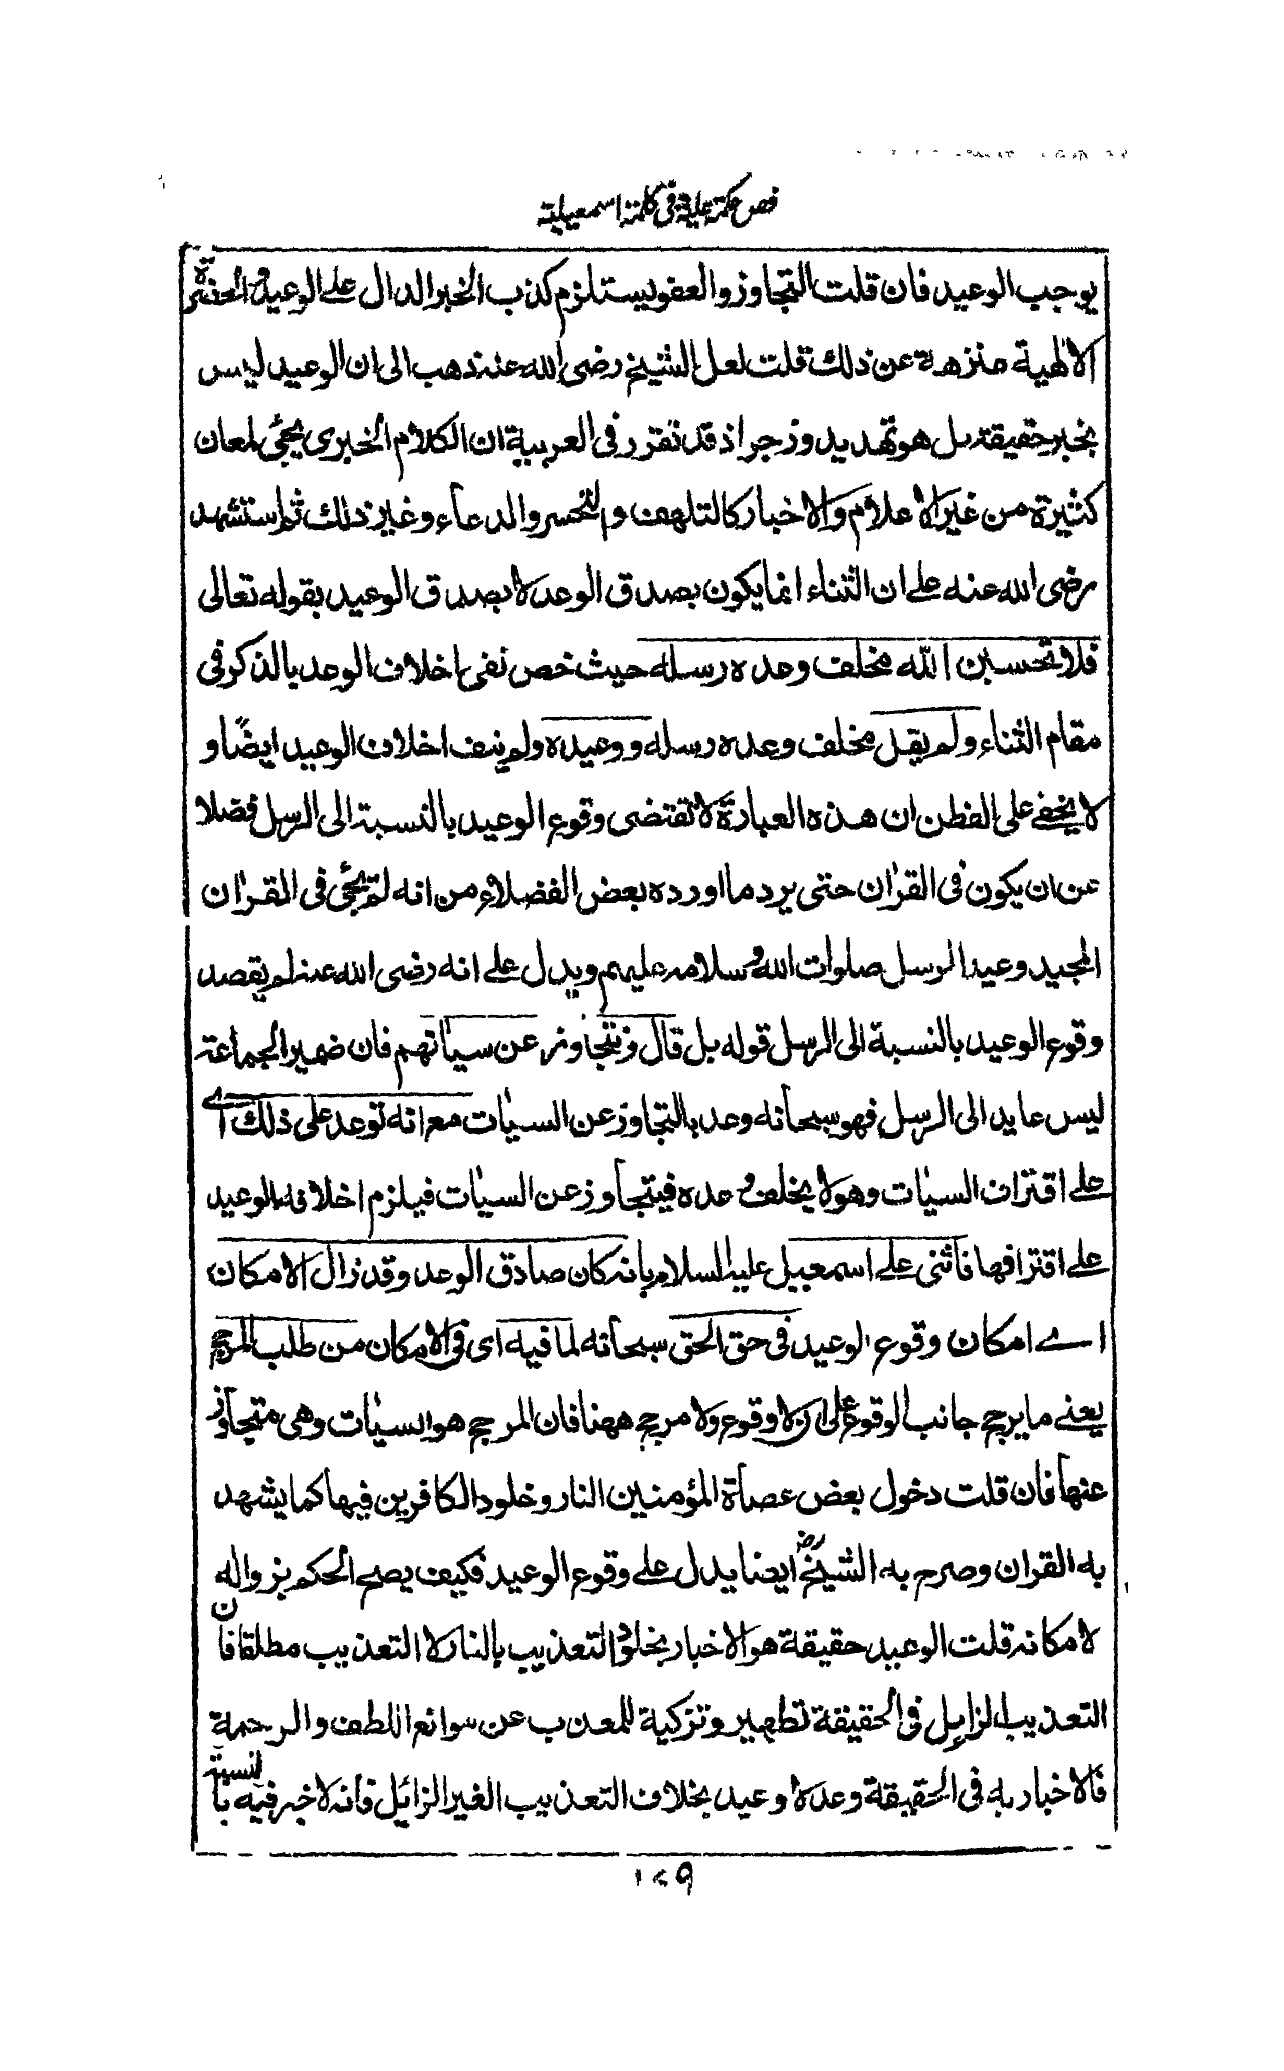 فص حكمة علية في كلمة اسمعيلية
يوجب الوعيد فان قلت التجاوز والعفو يستلزم كذب الخبر الدال على الوعيد والحضرة
الالٰهية منزهة عن ذلك قلت لعل الشيخ رضى الله عنه ذهب الى ان الوعيد ليس
بخبر حقيقة بل هو تهديد وزجر اذ قد تقرر فى العربية ان الكلام الخبرى يجئ لمعان
كثيرة من غير الاعلام والاخبار كالتلهف والتحسر والدعاء وغير ذلك ثم استشهد
رضى الله عنه على ان الثناء انما يكون بصدق الوعد لا بصدق الوعيد بقوله تعالى
فلا تحسبن الله مخلف وعده رسله حيث خص نفى اخلاف الوعد بالذكر فى
مقام الثناء ولم يقل مخلف وعده رسله ووعيده ولم ينف اخلاف الوعيد ايضًا و
لا يخفى على الفطن ان هذه العبارة لا تقتضى وقوع الوعيد بالنسبة الى الرسل فضلا
عن ان يكون فى القرٰان حتى يرد ما اورده بعض الفضلاء من انه لم يجئ فى القرٰان
المجيد وعيد الرسل صلوات الله وسلامه عليهم ويدل على انه رضى الله عنه لم يقصد
وقوع الوعيد بالنسبة الى الرسل قوله بل قال ونتجاوز عن سياٰتهم فان ضمير الجماعة
ليس عايد الى الرسل فهو سبحانه وعد بالتجاوز عن السيٰات مع انه توعد على ذلك اے
على اقتراف السيٰات وهو لا يخلف وعده فيتجاوز عن السيٰات فيلزم اخلافه الوعيد
على اقترافها فاثنى على اسمعيل عليه السلام بانه كان صادق الوعد وقد زال الامكان
اے امكان وقوع الوعيد فى حق الحق سبحانه لما فيه اى فى الامكان من طلب المرجح
يعنے ما يرجح جانب الوقوع على ان لا وقوع ولا مرجح ههنا فان المرجح هو السيٰات وهى متجاوز
عنها فان قلت دخول بعض عصاة المؤمنين النار وخلود الكافرين فيها كما يشهد
به القران وصرح به الشيخ رض ايضا يدل على وقوع الوعيد فكيف يصح الحكم بزواله
لامكانه قلت الوعيد حقيقة هو الاخبار بخلود التعذيب بالنار لا التعذيب مطلقا فان
التعذيب الزايل فى الحقيقة تطهير وتزكية للمعذب عن سوانع اللطف والرحمة
فالاخبار به فى الحقيقة وعد لا وعيد بخلاف التعذيب الغير الزائل فانه لا خير فيه بالنسبة
١٢٩